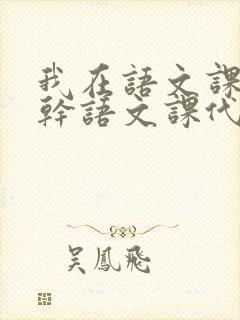 我在語文課
幹語文課代
吳鳳飛